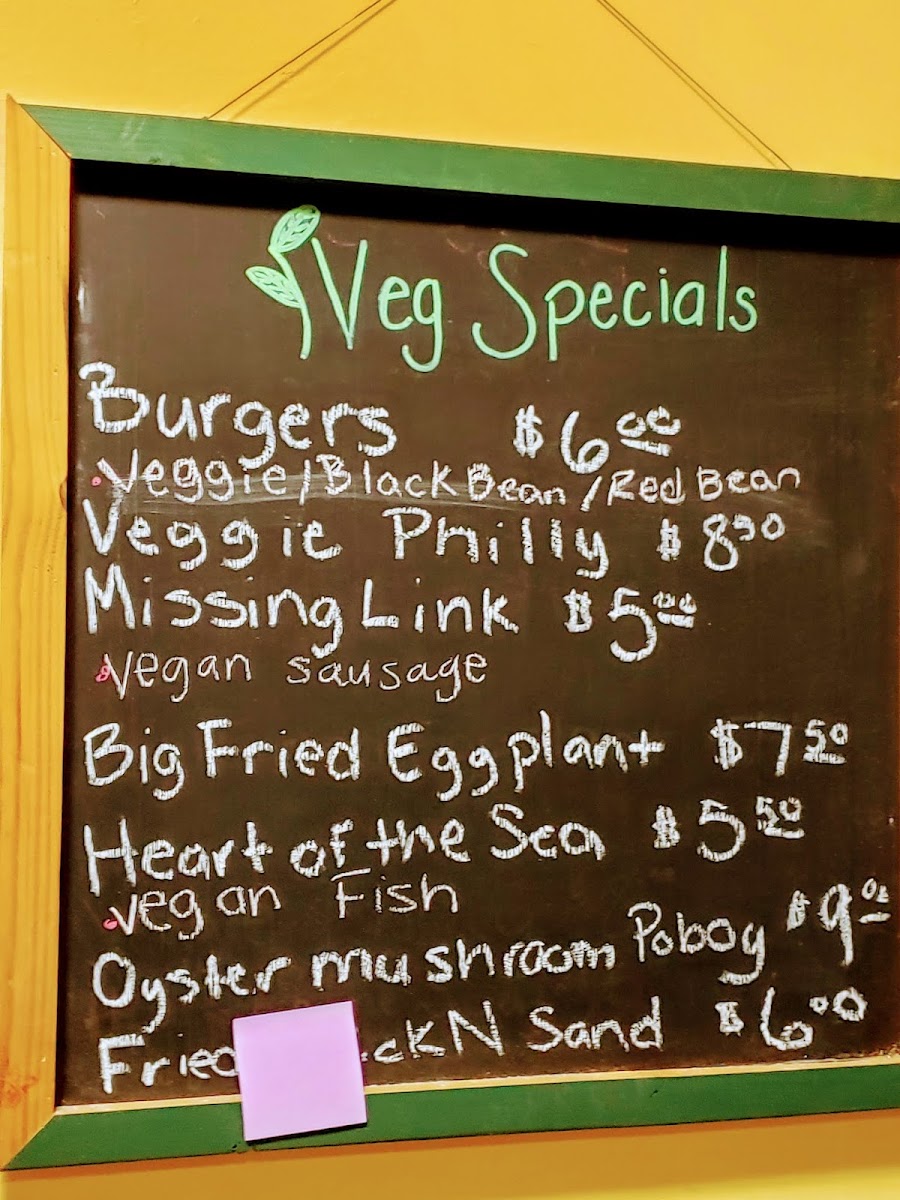 Veg Specials
Burgers $6.00
Veggie/Black Bean/Red Bean
Veggie Philly $8.90
Missing Link $5.00
Vegan sausage
Big Fried Eggplant $7.50
Heart of the Sea $5.50
Vegan Fish
Oyster mushroom Poboy $9.
Fried N Sand $6.00